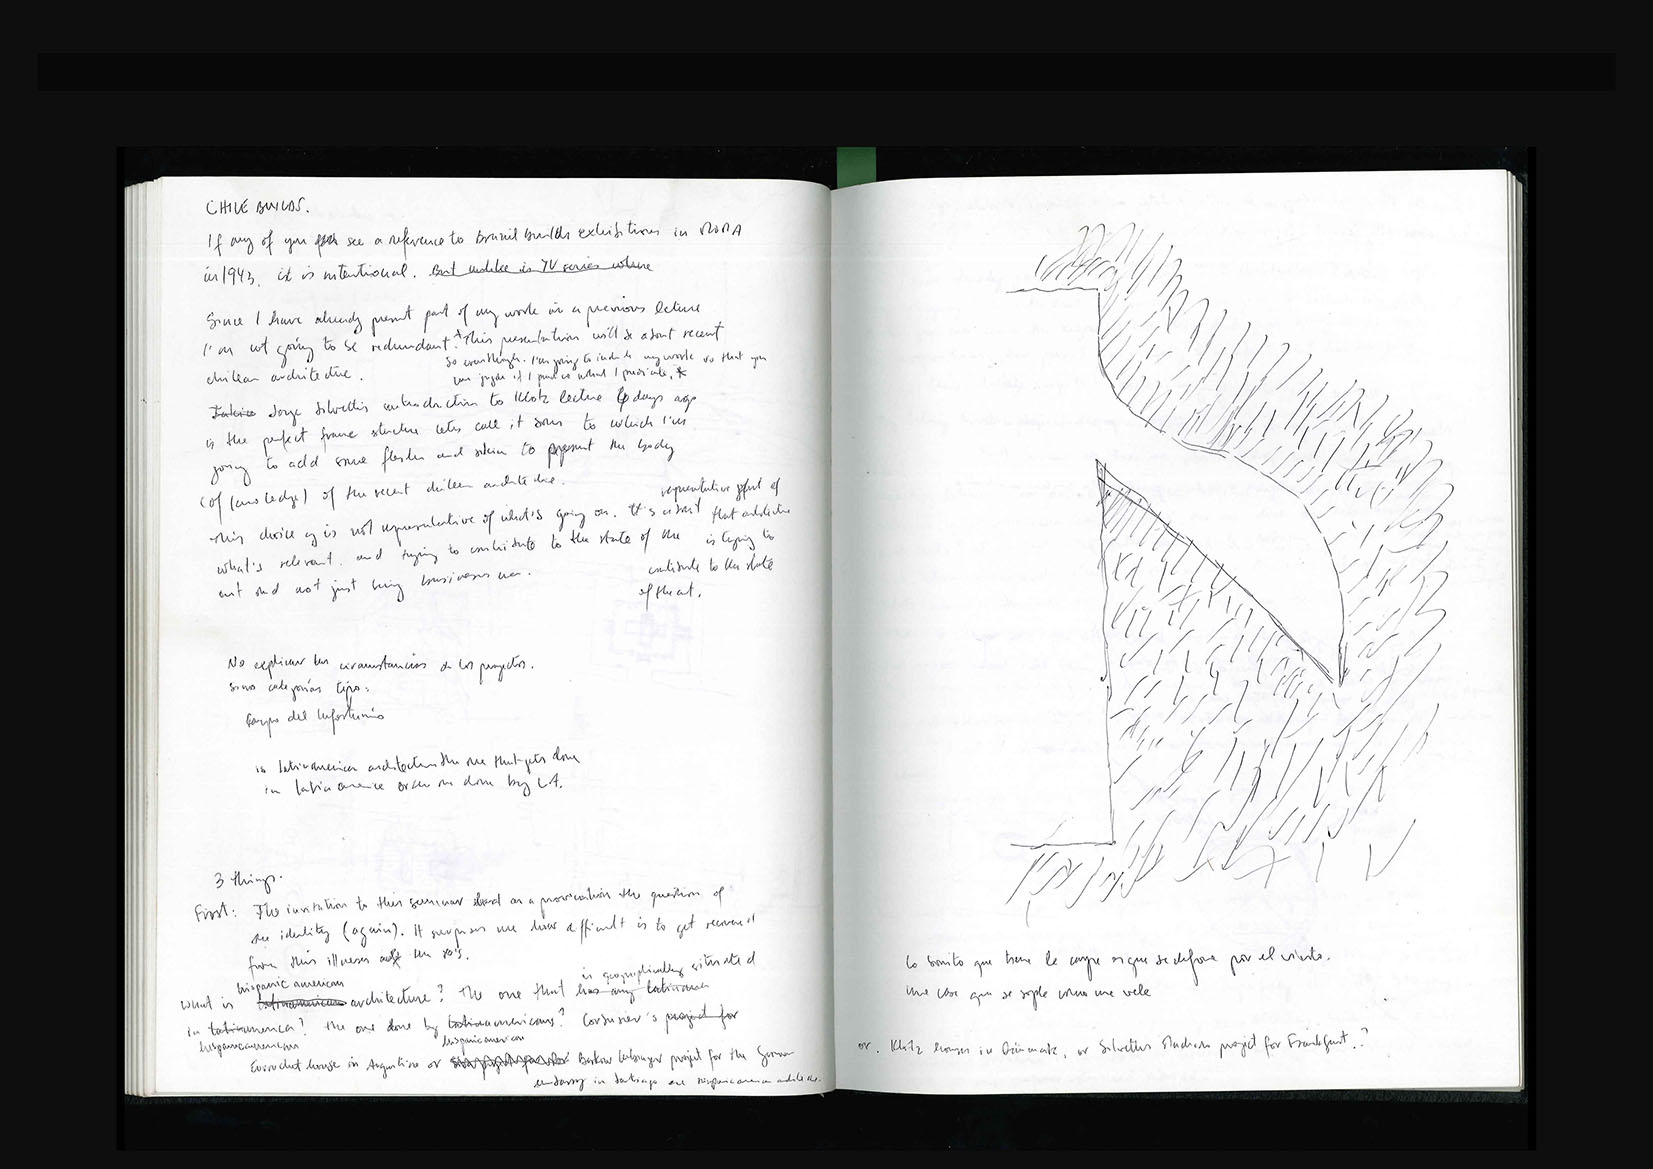 CHILE BUILDS.
If any of you see a reference to Brazil Builds exhibitions in MOMA
in 1943, it is intentional. But unlike in TV series where
Since I have already present part of my work in a previous lecture
I'm not going to be redundant.* This presentation will be about recent
chilean architecture.
so eventhough. I'm going to include my work so that you
can judge if I practice what I predicate.*
Jorge Silvettis introduction to Klotz lecture days ago
is the perfect frame structure lets call it to which I'm
going to add some flesh and skin to present the body
(of knowledge) of the recent chilean architecture.
This choice is not representative of what's going on. It's about
what's relevant. and trying to contribute to the state of the
art and not just being business men.
representative of
that architecture
is trying to
contribute to the state
of the art.
No explicar las circunstancias de los proyectos.
sino categorías tipo:
del infortunio
is latinamerican architecture the one that gets done
in latinamerica or the one done by LA.
3 things.
First: The invitation to this seminar as a provocation the question of
the identity (again). It surprises me how difficult is to get recovered
from this illness the 80's.
hispanic american
What is latinamerican architecture? The one that has any latinamer
is geographically situated
in latinamerica? the one done by latinamericans? Corbusier's project for
hispanicamerican
hispanicamerican
Errazuriz house in Argentina or project for the German
embassy in Santiago are hispanicamerican architecture.
lo bonito que tiene la carpa es que se deforma por el viento.
una casa que se sople como una vela
or. Klotz houses in Denmark, or Silvettis project for Frankfurt.?